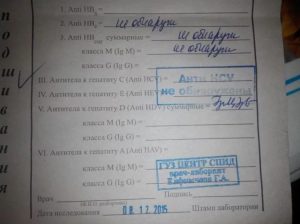 1. Anti HBs =
2. Anti HBe = не обнаружи
3. Anti HBcog суммарные = не обнаружи
класса М (Ig M) = не обнаружи
класса G (Ig G) =
III. Антитела к гепатиту С (Anti HCV) =
Анти HCV
не обнаружены
IV. Антитела к гепатиту Е (Anti HEV) =
V. Антитела к гепатиту D (Anti HDV) суммарные =
класса М (Ig M) =
класса G (Ig G) =
VI. Антитела к гепатиту А (Anti HAV) =
класса М (Ig M) =
класса G (Ig G) =
ГУЗ ЦЕНТР СПИД
врач-лаборант
Врач
Подпись
Дата исследования 08.12.2015
Штамп лаборатории
подшивания